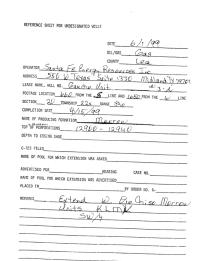 REFERENCE SHEET FOR UNDESIGNATED WELLS
DATE 6/1/99
OIL/GAS Gas
COUNTY Lea
OPERATOR Santa Fe Energy Resources Inc
ADDRESS 550 W Texas Suite 1330 Midland TX 79701
LEASE NAME, WELL NO. Gaucho Unit
FOOTAGE LOCATION 1650 FROM THE S LINE AND 1650 FROM THE W LINE
SECTION 20 TOWNSHIP 22s RANGE 34e
COMPLETION DATE 4/15/99
NAME OF PRODUCING FORMATION Morrow
TOP OF PERFORATIONS 12900 - 12940
DEPTH TO CASING SHOE
C-123 FILED
NAME OF POOL FOR WHICH EXTENSION WAS ASKED
ADVERTISED FOR HEARING CASE NO.
NAME OF POOL FOR WHICH EXTENSION WAS ADVERTISED
PLACED IN BY ORDER NO. R-
REMARKS Extend W. Morrow
Units K L M N
SW/4